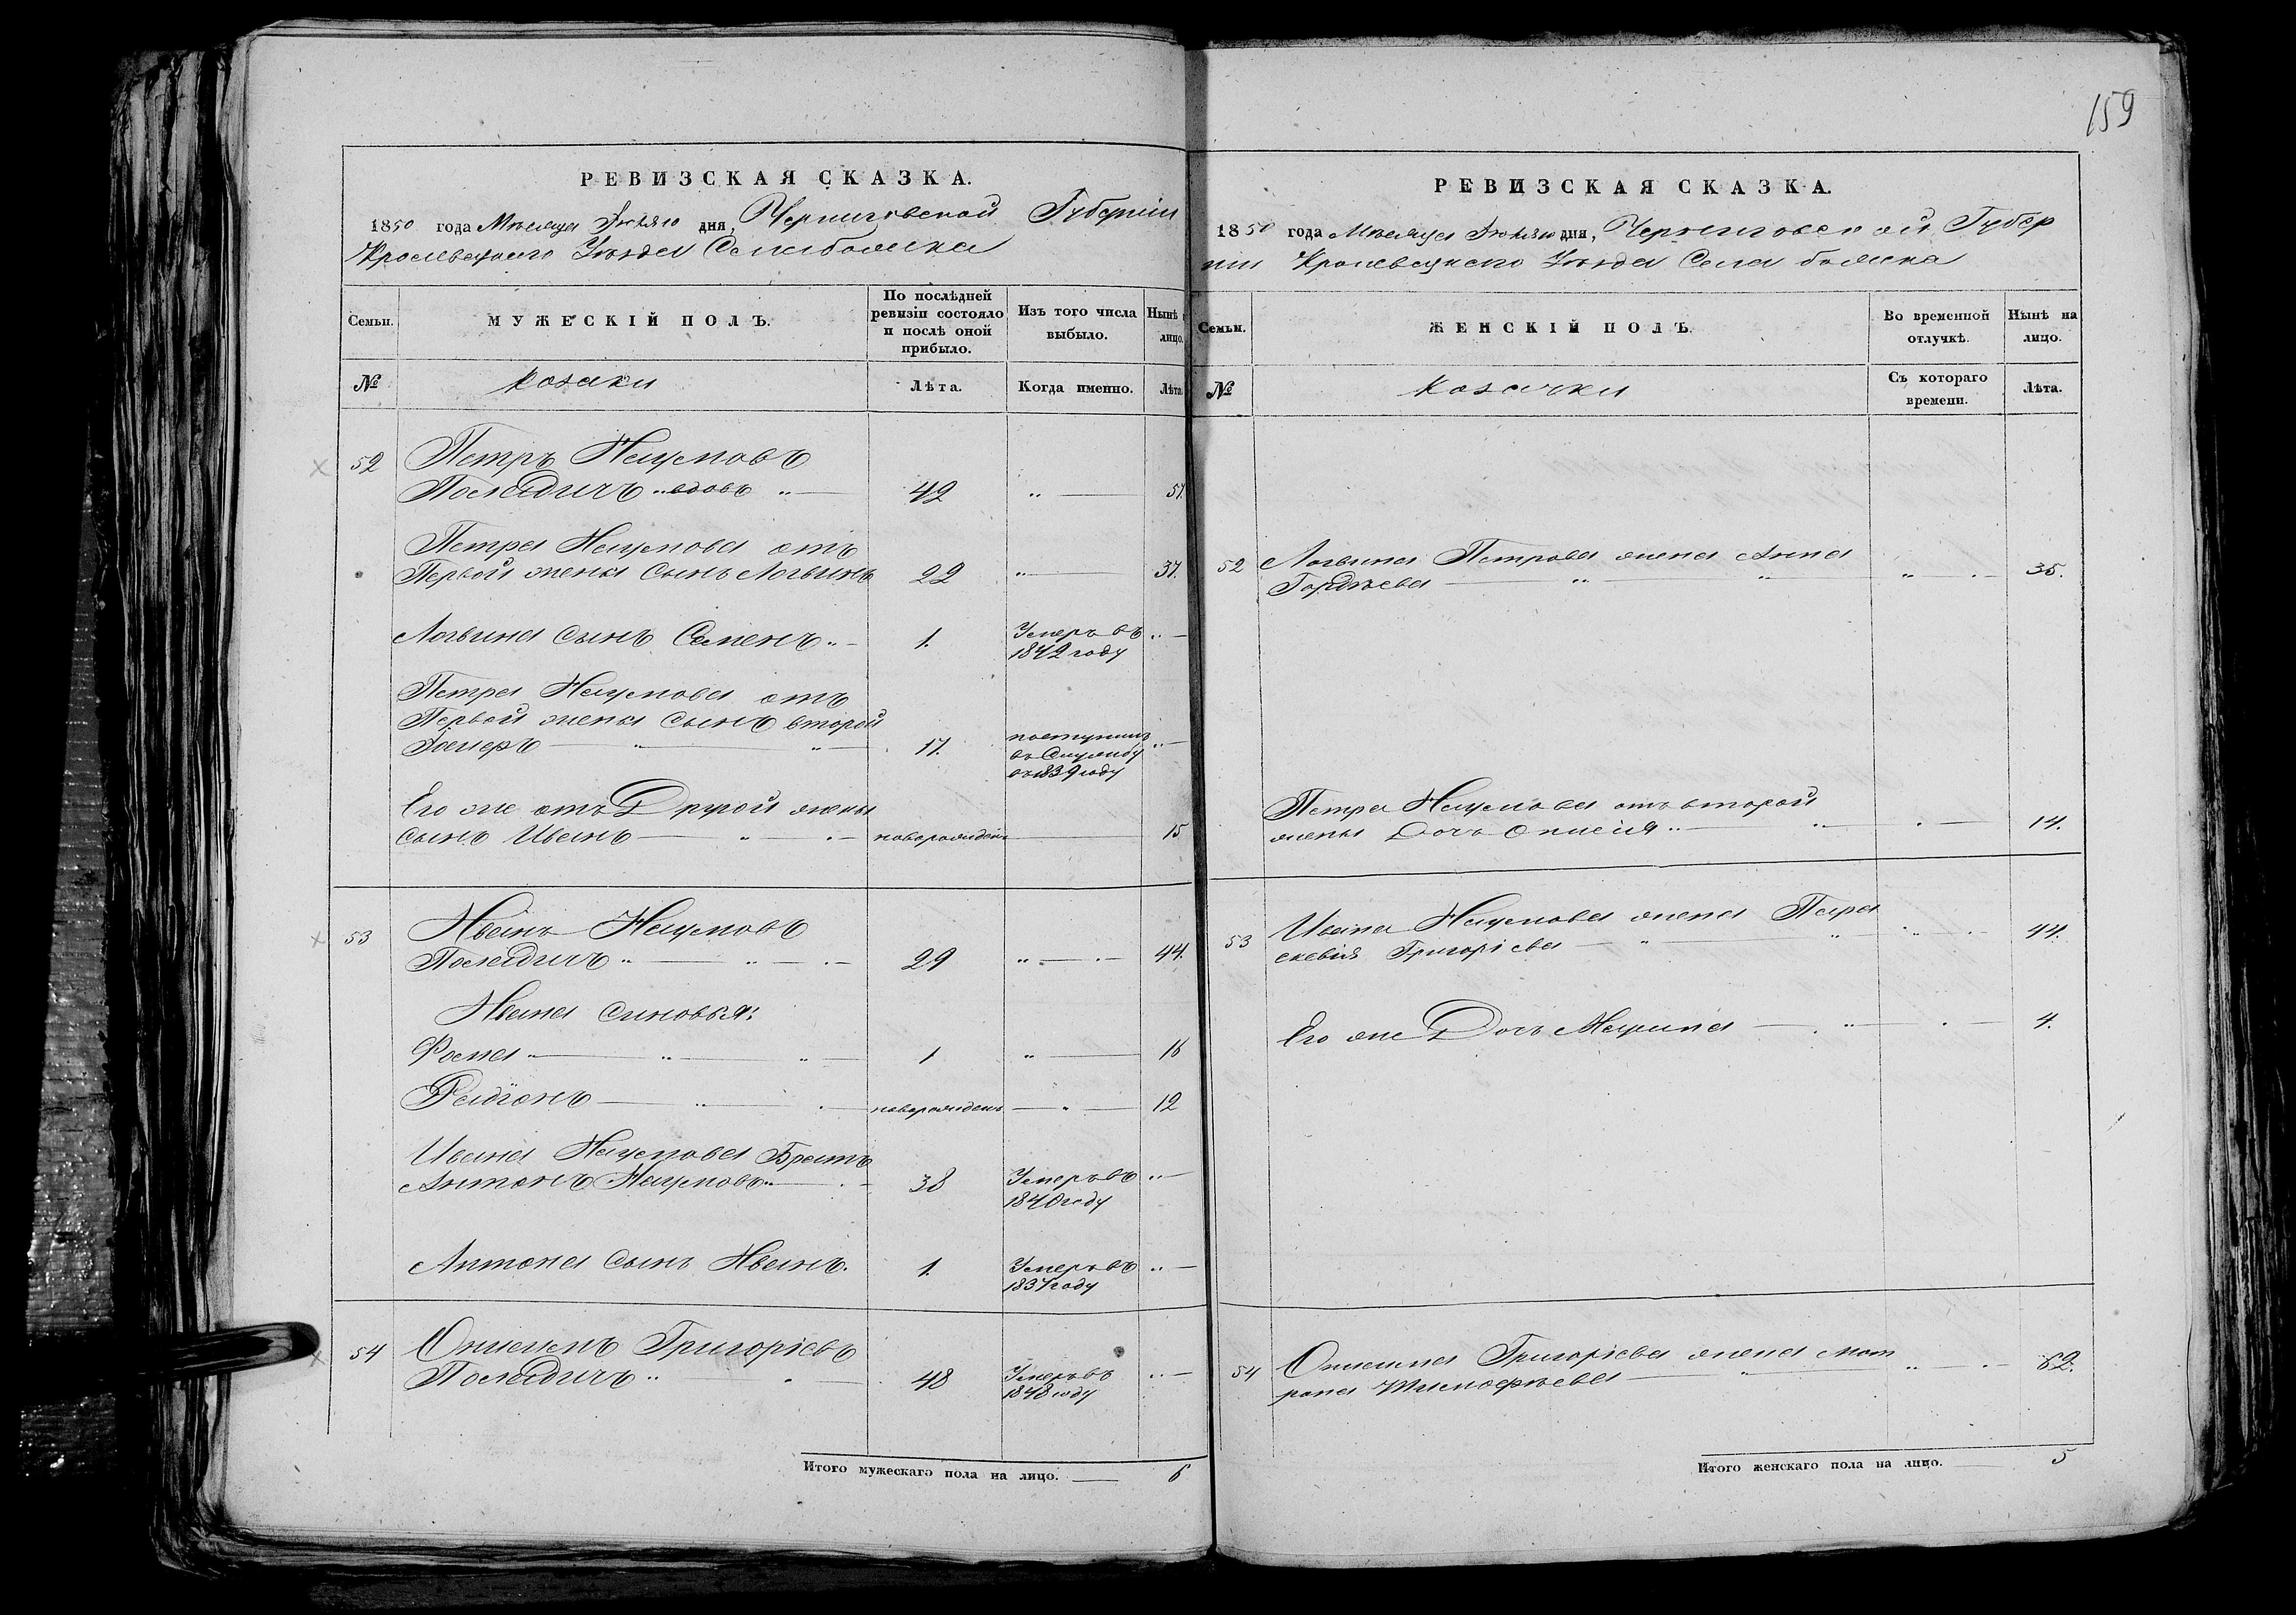 159
РЕВИЗСКАЯ СКАЗКА.
1850 года Мѣсяца Іюля 10 дня, Черниговской Губерніи
Кролевецкаго Уѣзда Села
Семьи.
МУЖЕСКІЙ ПОЛЪ.
По послѣдней ревизіи состояло и послѣ оной прибыло.
Изъ того числа выбыло.
Нынѣ
лицо.
№
козаки
Лѣта.
Когда именно.
Лѣта
52
Петръ Наумовъ
Посладичъ „ вдовъ „ 42 „ 57.
Петра Наумова отъ
Первой жены Сынъ Логвинъ 22 „ 37.
Логвина Сынъ Семенъ „ 1. Умеръ въ „
1842 году
Петра Наумова отъ
Первой жены Сынъ второй
„ „ 17. поступилъ „
въ Службу
въ 1839 году
Его же отъ Другой жены
Сынъ Иванъ „ новорожденъ 15
53
Иванъ Наумовъ
Посладичъ „ „ 29 „ 44.
Ивана синовья:
Фома „ „ „ 1 „ 16
Радіонъ „ новорожденъ „ 12
Ивана Наумова Братъ
Антонъ Наумовъ „ 38 Умеръ въ „
1840 году
Антона Сынъ Иванъ. 1. Умеръ въ „
1837 году
54
Григоріевъ
Посладичъ „ 48 Умеръ въ „
1848 году
Итого мужескаго пола на лицо. 6
РЕВИЗСКАЯ СКАЗКА.
1850 года Мѣсяца Іюля 10 дня, Черниговской Губер
ніи Кролевецкаго Уѣзда Села
Семьи.
ЖЕНСКІЙ ПОЛЪ.
Во временной отлучкѣ.
Нынѣ на лицо.
№
козачки
Съ котораго времени.
Лѣта.
52 Логвина Петрова жена Анна
Гордѣева „ „ „ 35.
Петра Наумова отъ второй
жены Дочь „ „ 14.
53 Ивана Наумова жена Пара
скевія Григоріева „ „ „ 44.
Его же Дочь Марина „ 4.
54 Григоріева жена Мот
рона Тимофѣева „ „ 62.
Итого женскаго пола на лицо. 5